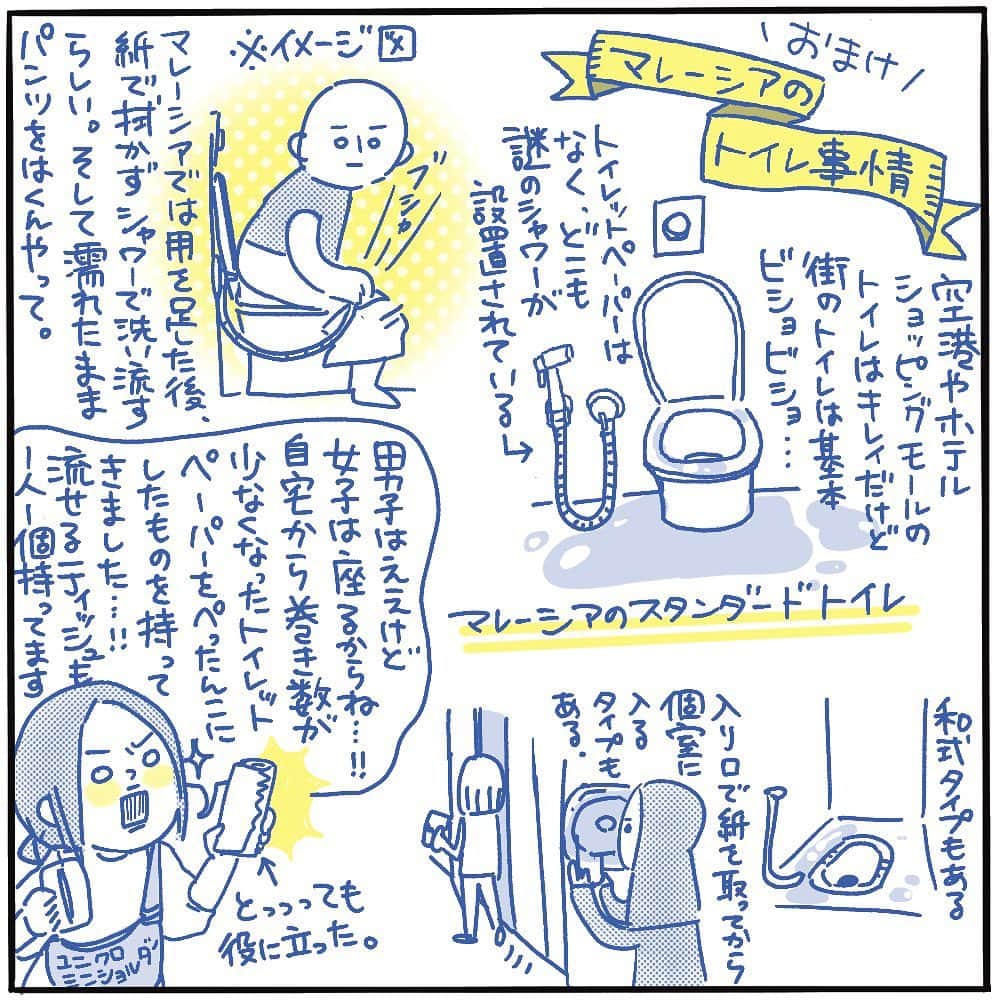 おまけ
マレーシアの
トイレ事情
空港やホテル
ショッピングモールの
トイレはキレイだけど
街のトイレは基本
ビショビショ…
トイレットペーパーは
なく、どこも
謎のシャワーが
設置されている→
マレーシアのスタンダードトイレ
※イメージ図
ブシャー
マレーシアでは用を足した後、
紙で拭かずシャワーで洗い流す
らしい。そして濡れたまま
パンツをはくんやって。
和式タイプもある
入り口で紙を取ってから
個室に
入る
タイプも
ある.
男子はええけど
女子は座るからね…!!
自宅から巻き数が
少なくなったトイレット
ペーパーをぺったんこに
したものを持って
きました…!!
流せるティッシュも
1人1個持ってます
とっっっても
役に立った。
ユニクロ
ミニショルダー